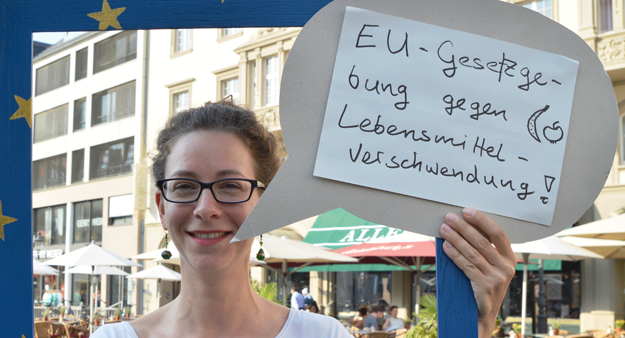 EU-Gesetzge-
bung gegen
Lebensmittel-
verschwendung!
ALLE